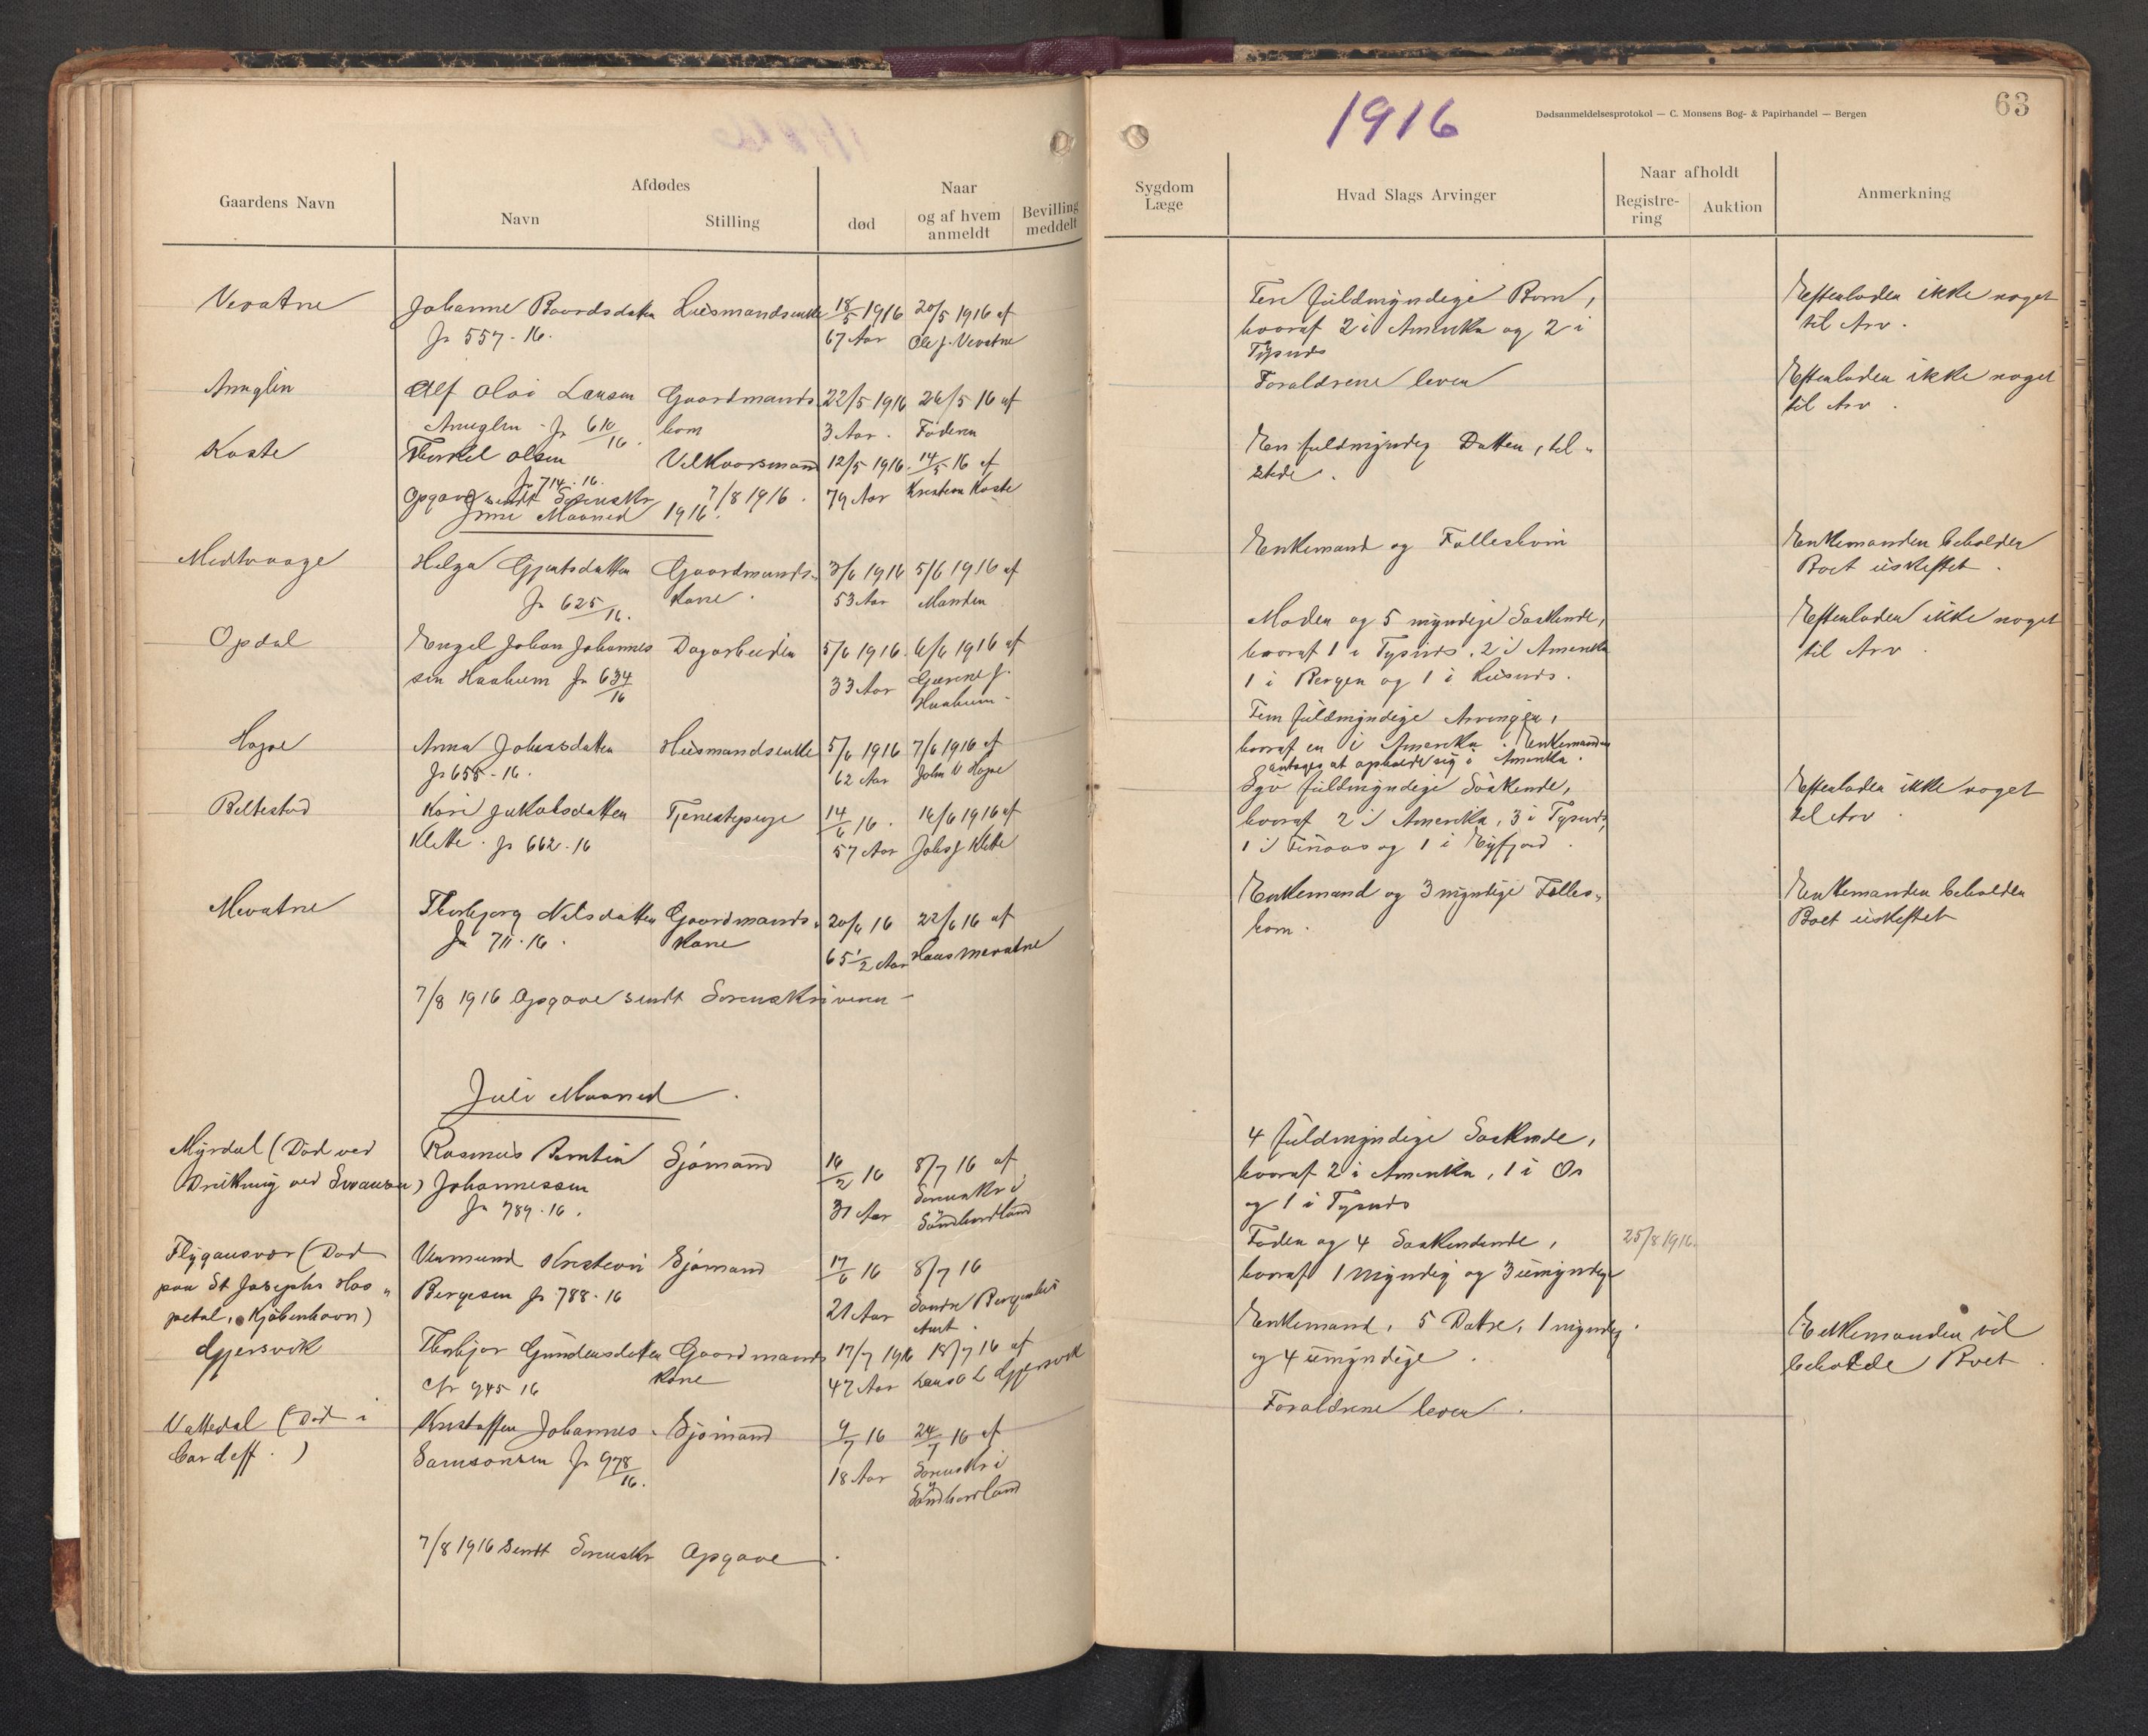 1916
Dødsanmeldelsesprotokol — C. Monsens Bog- & Papirhandel — Bergen
63
Gaardens Navn
Afdødes
Navn
Stilling
Naar
død
og af hvem
anmeldt
Bevilling
meddelt
Sygdom
Læge
Hvad Slags Arvinger
Naar afholdt
Registre-
ring
Auktion
Anmerkning
Vevatne
Johanne Baardsdatter Husmandsenke 18/5 1916 20/5 1916 af
Jr 557-16. 67 Aar Ole J. Vevatne
fuldmyndige Børn,
hvoraf 2 i Amerika og 2 i
Tysnæs
Efterlader ikke noget
til Arv.
Alf Olai Larsen Gaardmands- 22/5 1916 26/5 16 af
Jr 610/16. barn 3 Aar. Faderen
Forældrene lever
Efterlader ikke noget
til Arv.
Kaste
Thorkel Olsen Velkaarsmand 12/5 1916. 14/5 16 af
Jr 714-16. 79 Aar Kristen Kaste
Opgave sendt Sorenskr 7/8 1916.
En fuldmyndig Datter, til-
stede.
Juni Maaned 1916.
Helga Gjertsdatter Gaardmands- 3/6 1916 5/6 1916 af
Jr 625/16. kone. 53 Aar Manden
Enkemand og Fællesbørn
Enkemanden beholder
Boet uskiftet.
Opdal
Engel Johan Johannes Dagarbeider 5/6 1916. 6/6 1916 af
sen Haaheim Jr 634/16 33 Aar J.
Haaheim-
Moder og 5 myndige Søskende,
hvoraf 1 i Tysnæs, 2 i Amerika
1 i Bergen og 1 i Kusnæs.
Efterlader ikke noget
til Arv.
Anna Johnsdatter Husmandsenke 5/6 1916 7/6 1916 af
Jr 658-16. 62 Aar John
Fem fuldmyndige Arvinger,
hvoraf en i Amerika. Enkemanden
antages at opholde sig i Amerika.
Beltestad
Kari Jakobsdatter Tjenestepige 14/6 16. 16/6 1916 af
Klette. Jr 662-16 57 Aar Johs J Klette
Syv fuldmyndige Søskende,
hvoraf 2 i Amerika, 3 i Tysnæs,
1 i Finaas og 1 i Eifjord.
Efterlader ikke noget
til Arv
Mevatne
Thorbjørg Nilsdatter Gaardmands- 20/6 16 22/6 16 af
Jr 711-16. kone 65 1/2 Aar Hans Mevatne
Enkemand og 3 myndige Fælles-
børn.
Enkemanden beholder
Boet uskiftet
7/8 1916 Opgave sendt Sorenskriveren -
Juli Maaned.
Myrdal (Død ved
Drukning ved Swansea)
Rasmus Berntin Sjømand 16/2 16 8/7 16 af
Johannessen 31 Aar Sorenskr i
Jr 789-16. Søndhordland
4 fuldmyndige Søskende,
hvoraf 2 i Amerika, 1 i Os
og 1 i Tysnæs
Flygansvær (Død
paa St Josephs Hos-
petal, Kjøbenhavn)
Vermund Kristian Sjømand 17/6 16 8/7 16
Bergesen Jr 788-16 21 Aar Søndre Bergenhus
Amt.
Fader og 4 Søskendende,
hvoraf 1 myndig og 3 umyndige
25/8 1916.
Gjersvik
Thorbjør Gundersdatter Gaardmands 17/7 1916 18/7 16 af
Jr 945 16 kone 47 Aar Lars O L Gjersvik
Enkemand, 5 Døtre, 1 myndig.
og 4 umyndige.
Enkemanden vil
beholde Boet.
Vattedal (Død i
Cardeff.)
Kristoffer Johannes Sjømand 9/7 16 24/7 16 af
Samsonsen Jr 978/16. 18 Aar Sorenskr i
Søndhordland
Forældrene lever.
7/8 1916 Sendt Sorenskr Opgave.